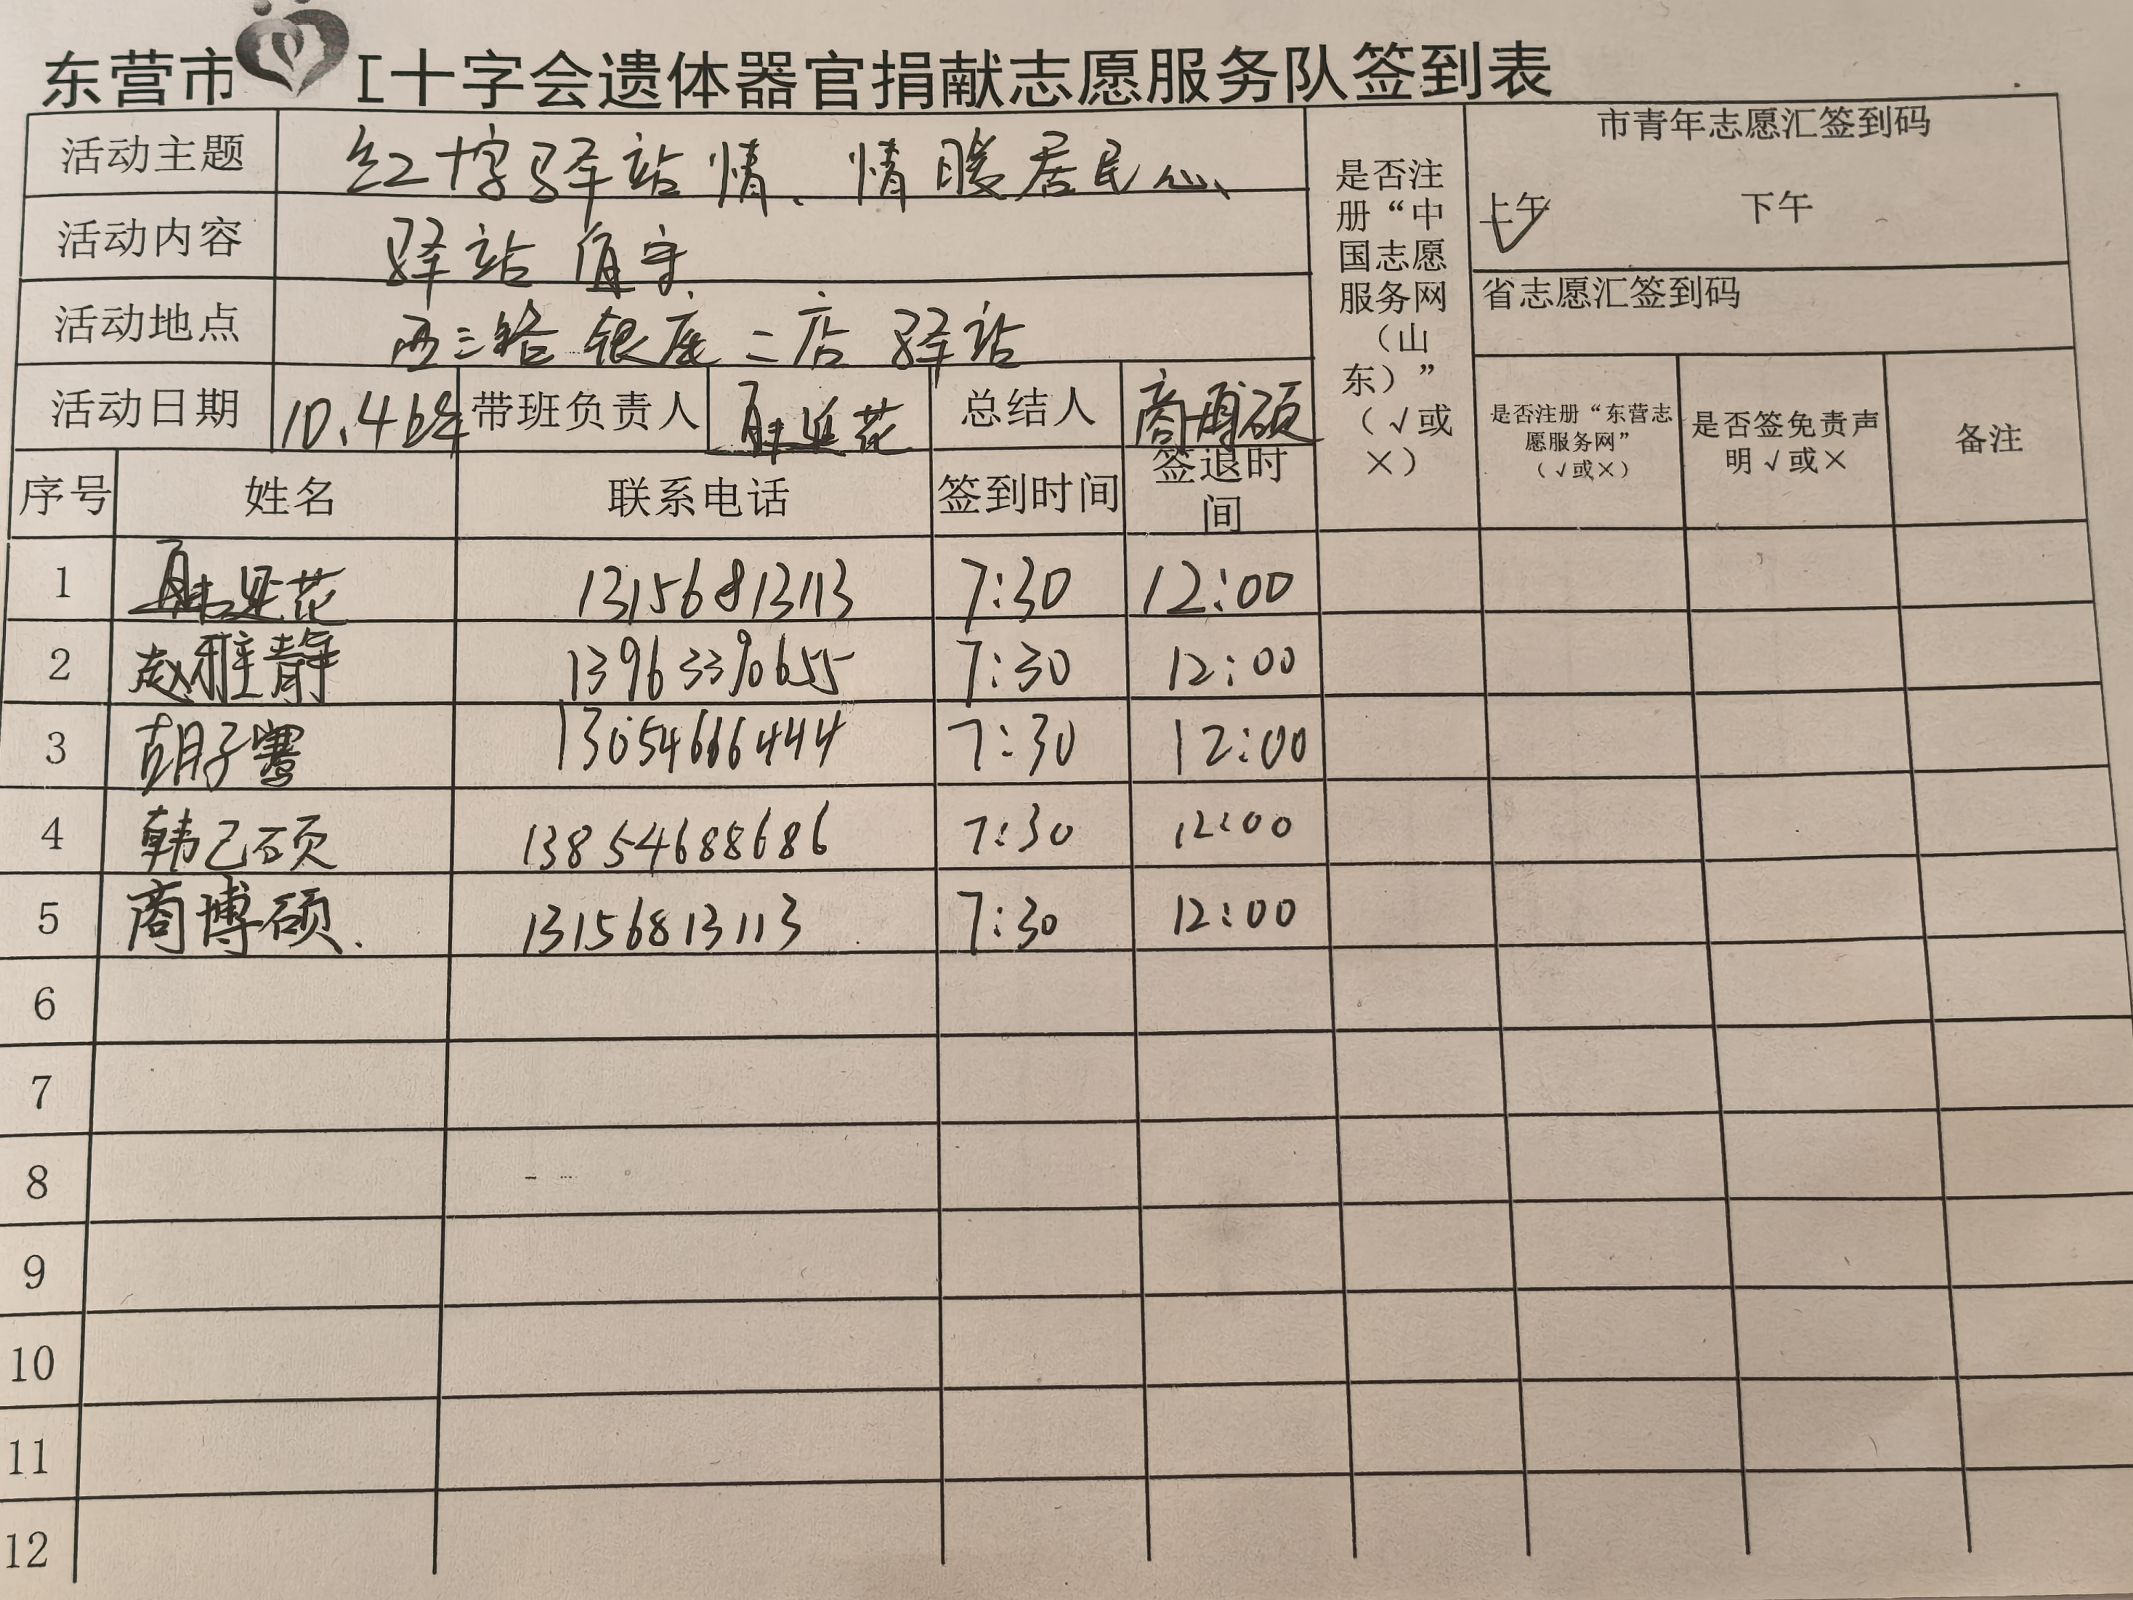 东营市 工十字会遗体器官捐献志愿服务队签到表
活动主题 红十字驿站情、情暖居民心
活动内容 驿站值守
活动地点 西三路银座二店驿站
活动日期 10.4 带班负责人 延花 总结人 商博硕
是否注册“中国志愿服务网（山东）”（√或×）
市青年志愿汇签到码
上午 √ 下午
省志愿汇签到码
是否注册“东营志愿服务网”（√或×） 是否签免责声明√或× 备注
序号 姓名 联系电话 签到时间 签退时间
1 延花 13156813113 7:30 12:00
2 赵雅静 13963390655 7:30 12:00
3 胡子骞 13054666444 7:30 12:00
4 韩己硕 13854688686 7:30 12:00
5 商博硕. 13156813113 7:30 12:00
6
7
8
9
10
11
12